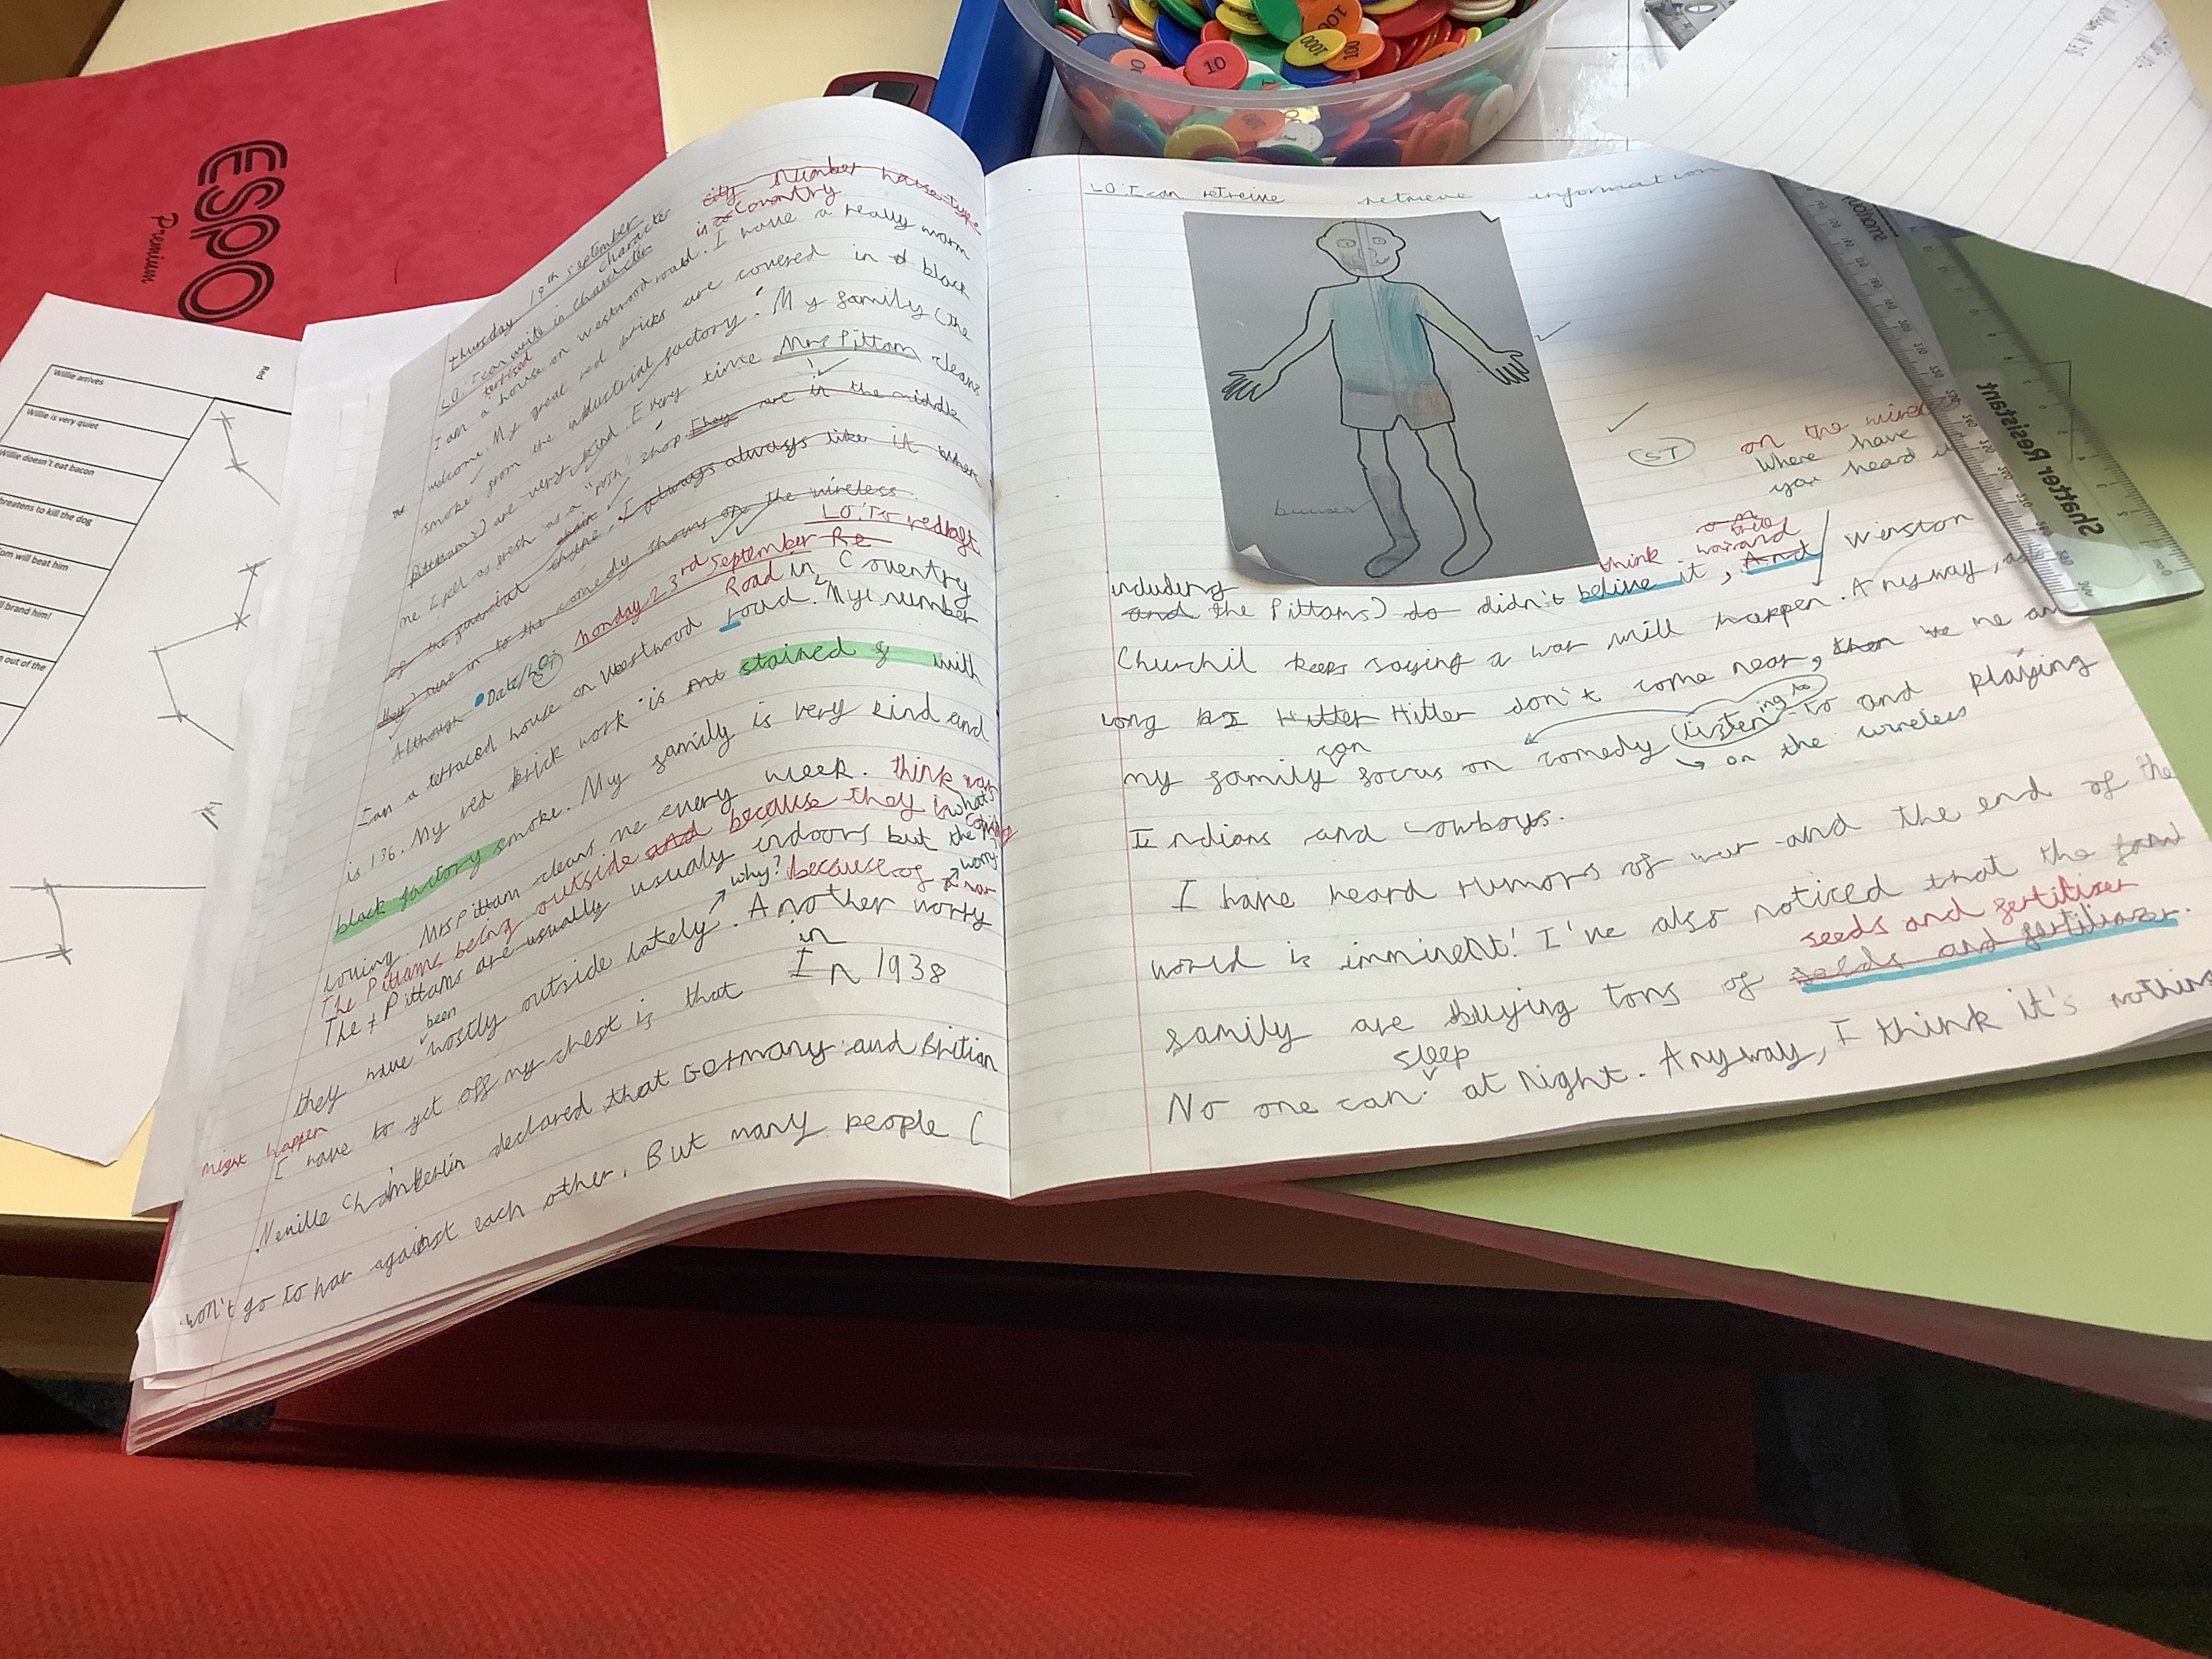 ESPO
Premium
Red
Willie arrives
Willie is very quiet
Willie doesn't eat bacon
threatens to kill the dog
om will beat him
brand him!
out of the
10
1000
100
Thursday 19th september
city number house type
LO: I can write in character
character
in Coventry
terrised
I am a house on westwood road. I have a really warm
welcome. My great red bricks are covered in black
smoke from the industrial factory. My family (the
Pittam's) are very kind. Every time Mrs Pittam cleans
me I feel as fresh as a "posh" shop. They are in the middle
of the I always always like it when
they tune in to the comedy shows on the wireless.
Although
Date/LO
Monday 23rd September Re
LO: To redraft
Road in Coventry
I am a terraced house on Westwood road. My number
is 136. My red brick work is stained & with
black factory smoke. My family is very kind and
loving. Mrs Pittam cleans me every week. think
The Pittams being outside and because they
what's
coming
The Pittams are usually usualy indoors but the
why? because of a war
worry
they have been mostly outside lately. Another worry
in
I have to get off my chest is that In 1938
might happen
Neville Chamberlin declared that Germany and Britian
won't go to war against each other. But many people (
LO: I can retreive retrieve information
ST
on the wireless
Where have
you heard it
think
including
and the Pittams) do didn't belive it, And Winston
Churchil keeps saying a war will happen. Anyway, as
long Hitter Hitler don't come near, then we me and
can
ing to
my family focus on comedy listen to and playing
on the wireless
Indians and cowboys.
I have heard rumors of war and the end of the
world is imminent! I've also noticed that the fam
seeds and fertiliser
family are buying tons of seeds and fertiliazer.
sleep
No one can at Night. Anyway, I think it's nothing
Shatter Resistant